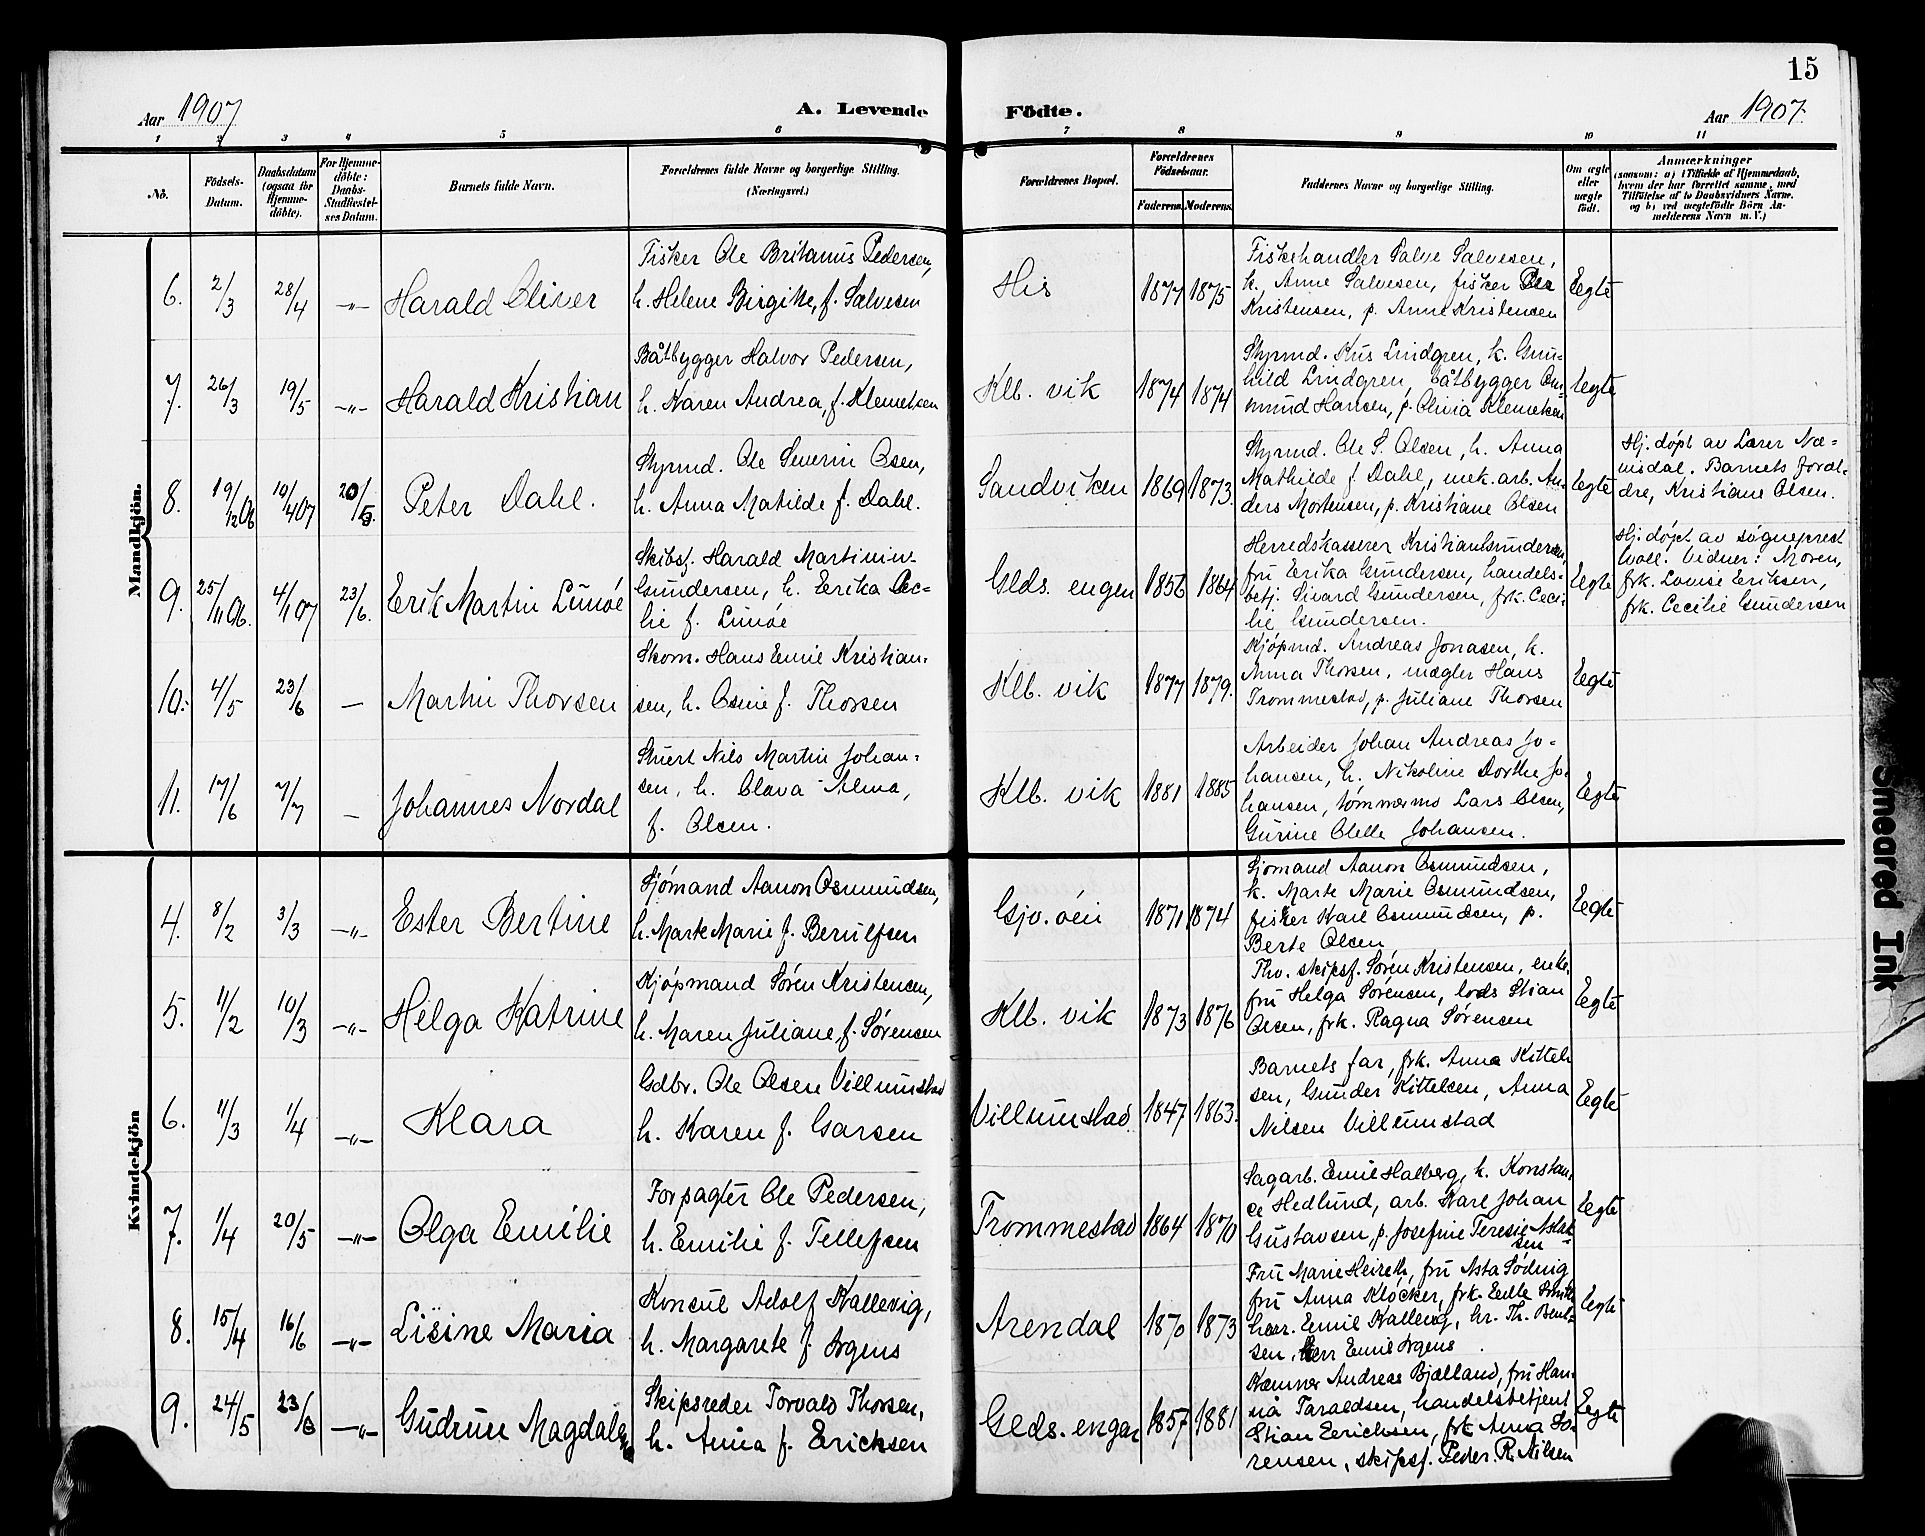 15
Aar 1907
A. Levende Födte.
Aar 1907.
1 2 3 4 5 6 7 8 9 10 11
No.
Födsels-
Datum.
Daabsdatum
(ogsaa for
Hjemme-
döbte).
For Hjemme-
döbte:
Daabs-
Stadfæstel-
ses Datum.
Barnets fulde Navn.
Forældrenes fulde Navne og borgerlige Stilling.
(Næringsvei.)
Forældrenes Bopæl.
Forældrenes
Födselsaar.
Faderens. Moderens.
Faddernes Navne og borgerlige Stilling.
Om ægte
eller
uægte
födt.
Anmærkninger
(saasom: a) i Tilfælde af Hjemmedaab,
hvem der har forrettet samme, med
Tilföielse af to Daabsvidners Navne.
og b) ved uægtefödte Börn An-
melderens Navn m. V.)
Mandkjön.
6. 2/3 28/4 -"- Harald Oliver
Fisker Ole Britanius Pedersen,
h. Helene Birgitte, f. Salvesen
His 1877 1875
Fiskehandler Salve Salvesen,
k. Anne Salvesen, fisker Ole
Kristensen, p. Anne Kristensen
Egte
7. 26/3 19/5 -"- Harald Kristian
Båtbygger Halvor Pedersen,
h. Karen Andrea, f. Klemetsen
Klb. vik 1874 1874
Styrmd. Kris Lindgren, k. Gun-
hild Lindgren, båtbygger Os-
mund Hansen, p. Olivia Klemetsen
Egte
8. 19/12 06 10/4 07 20/5. Peter Dahl.
Styrmd. Ole Severin Osen,
h. Anna Matilde f. Dahl.
Sandviken 1869 1873.
Styrmd. Ole S. Olsen, h. Anna
Mathilde f. Dahl, mek. arb. An-
ders Mortensen, p. Kristiane Olsen
Egte
Hj. døpt av Lærer Næ-
nisdal. Barnets foræl-
dre, Kristiane Olsen.
9. 25/11 06. 4/1 07 23/6. Erik Martin Lunöe
Skibsf. Harald Martinius
Gundersen, h. Erika Ce-
lie f. Lunöe
Glds. engen 1856 1864
Herredskasserer Kristian Gundersen,
fru Erika Gundersen, handels-
betj. Sivard Gundersen, frk. Ceci-
lie Gundersen.
Egte
Hj. døpt av sogneprest
Woll. Vidner: Moren,
frk. Lovise Eriksen,
frk. Cecilie Gundersen
10. 4/5 23/6 - Martin Thorsen
Skom. Hans Emil Kristian-
sen, h. Osine f. Thorsen
Klb. vik 1877 1879.
Kjøpmd. Andreas Jonasen, h.
Anna Thorsen, mægler Hans
Trommestad, p. Juliane Thorsen
Egte
11. 17/6 7/7 - Johannes Nordal
Stuert Nils Martin Johan-
sen, h. Clava Alma,
f. Olsen.
Klb. vik 1881 1885
Arbeider Johan Andreas Jo-
hansen, h. Nikoline Dorthe Jo-
hansen, tømmermd Lars Olsen,
Gurine Olelle Johansen.
Egte
Kvindekjön
4. 8/2 3/3 -"- Ester Bertine
Sjömand Aanon Osmundsen,
h. Marte Marie f. Berulfsen
Gjv. öen 1871 1874
Sjömand Aanon Osmundsen,
k. Marte Marie Osmundsen,
fisker Karl Osmundsen, p.
Berte Olsen
Egte
5. 11/2 10/3 -"- Helga Katrine
Kjøpmand Sören Kristensen,
h. Maren Juliane, f. Sørensen
Klb. vik 1873 1876
Thv. skipsf. Søren Kristensen, enke-
fru Helga Sørensen, lods Stian
Olsen, frk. Ragna Sørensen
Egte
6. 11/3 1/4 -"- Klara
Gdbr. Ole Olsen Villumstad
h. Karen f. Larsen
Villumstad 1847 1863.
Barnets far, frk. Anna Kittel-
sen, Gunder Kittelsen, Anna
Nilsen Villumstad
Egte
7. 1/4 20/5 -"- Olga Emilie
Forpagter Ole Pedersen,
h. Emilie f. Tellefsen
Trommestad 1864 1870
Sagarb. Emil Halberg, h. Konstan-
ce Hedlund, arb. Karl Johan
Gustavsen, p. Josefine Teresie Aslak-
sen
Egte
8. 15/4 16/6 -"- Lisine Maria
Konsul Adolf Kallevig,
h. Margarete f. Ørgens
Arendal 1870 1873
Fru Marie Heireth, fru Asta Sødring
fru Anna Klöcker, frk. Smith
herr. Emil Kallevig, hr. Th. Bent-
sen, herr Emil Ørgens
Egte
9. 24/5 23/6 -"- Gudrun Magdalena
Skipsreder Torvald Thorsen,
h. Anna f. Ericksen
Glds. engen 1857 1881
Kæmner Andreas Bjælland, fru Han-
na Taraldsen, handelsbetjent
Stian Erichsen, frk Anna Sø-
rensen, skipsf. Peder. R. Nilsen
Egte
Smeared Ink